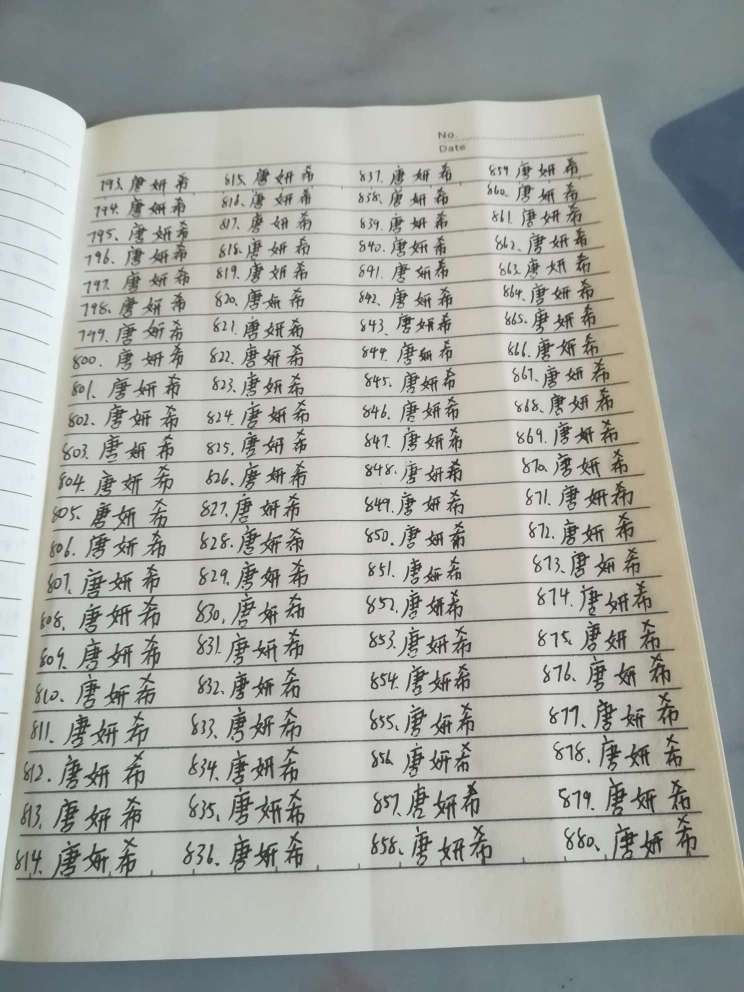 No.
Date
793. 唐妍希
794. 唐妍希
795. 唐妍希
796. 唐妍希
797. 唐妍希
798. 唐妍希
799. 唐妍希
800. 唐妍希
801. 唐妍希
802. 唐妍希
803. 唐妍希
804. 唐妍希
805. 唐妍希
806. 唐妍希
807. 唐妍希
808. 唐妍希
809. 唐妍希
810. 唐妍希
811. 唐妍希
812. 唐妍希
813. 唐妍希
814. 唐妍希
815. 唐妍希
816. 唐妍希
817. 唐妍希
818. 唐妍希
819. 唐妍希
820. 唐妍希
821. 唐妍希
822. 唐妍希
823. 唐妍希
824. 唐妍希
825. 唐妍希
826. 唐妍希
827. 唐妍希
828. 唐妍希
829. 唐妍希
830. 唐妍希
831. 唐妍希
832. 唐妍希
833. 唐妍希
834. 唐妍希
835. 唐妍希
836. 唐妍希
837. 唐妍希
838. 唐妍希
839. 唐妍希
840. 唐妍希
841. 唐妍希
842. 唐妍希
843. 唐妍希
844. 唐妍希
845. 唐妍希
846. 唐妍希
847. 唐妍希
848. 唐妍希
849. 唐妍希
850. 唐妍希
851. 唐妍希
852. 唐妍希
853. 唐妍希
854. 唐妍希
855. 唐妍希
856. 唐妍希
857. 唐妍希
858. 唐妍希
859. 唐妍希
860. 唐妍希
861. 唐妍希
862. 唐妍希
863. 唐妍希
864. 唐妍希
865. 唐妍希
866. 唐妍希
867. 唐妍希
868. 唐妍希
869. 唐妍希
870. 唐妍希
871. 唐妍希
872. 唐妍希
873. 唐妍希
874. 唐妍希
875. 唐妍希
876. 唐妍希
877. 唐妍希
878. 唐妍希
879. 唐妍希
880. 唐妍希